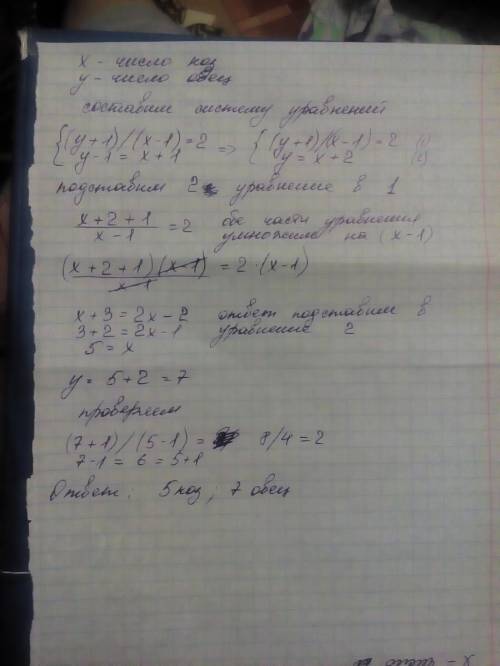 x - число коз
y - число овец
составим систему уравнений
{(y+1)/(x-1)=2 => {(y+1)/(x-1)=2 (1)
y-1 = x+1 y=x+2 (2)
подставим 2 уравнение в 1
(x+2+1)/(x-1) = 2 обе части уравнения
умножим на (x-1)
(x+2+1)(x-1)/(x-1) = 2·(x-1)
x+3=2x-2 ответ подставим в
3+2=2x-1 уравнение 2
5=x
y= 5+2=7
проверяем
(7+1)/(5-1)= 8/4=2
7-1= 6 =5+1
Ответ: 5 коз; 7 овец